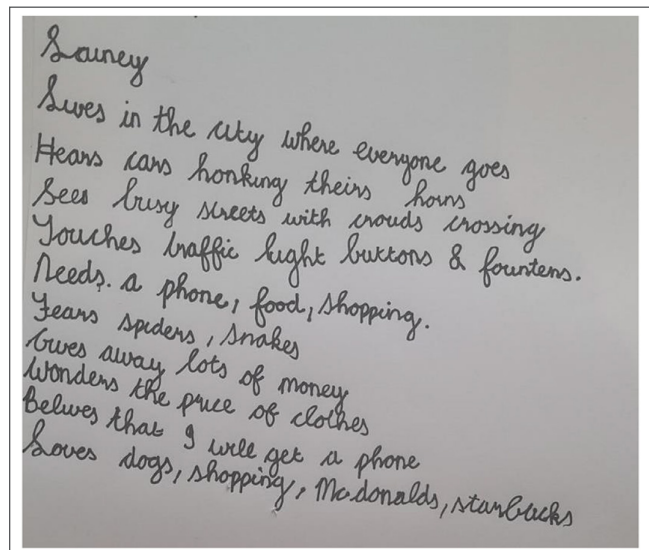 Launey
Lives in the city where everyone goes
Hears cars honking theirs horns
Sees busy streets with crouds crossing
Touches traffic light buttons & fountens.
Needs. a phone, food, shopping.
Fears spiders, snakes
Gives away lots of money
Wonders the price of clothes
Belives that I will get a phone
Loves dogs, shopping, Mc.donalds, starbucks